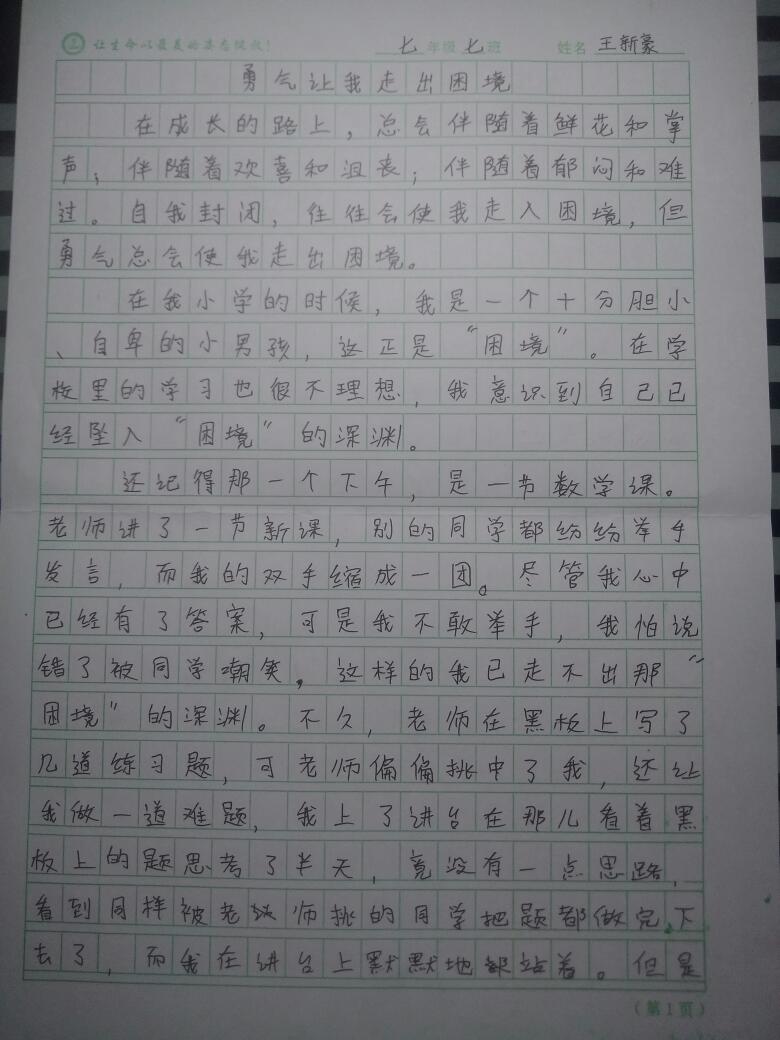 让生命以最美的姿态绽放! 七年级七班 姓名 王新豪
勇气让我走出困境
在成长的路上,总会伴随着鲜花和掌
声;伴随着欢喜和沮丧;伴随着郁闷和难
过。自我封闭,往往会使我走入困境,但
勇气总会使我走出困境。
在我小学的时候,我是一个十分胆小
、自卑的小男孩,这正是“困境”。在学
校里的学习也很不理想,我意识到自己已
经坠入“困境”的深渊。
还记得那一个下午,是一节数学课。
老师讲了一节新课,别的同学都纷纷举手
发言,而我的双手缩成一团。尽管我心中
已经有了答案,可是我不敢举手,我怕说
错了被同学嘲笑,这样的我已走不出那“
困境”的深渊。不久,老师在黑板上写了
几道练习题,可老师偏偏挑中了我,还让
我做一道难题,我上了讲台在那儿看着黑
板上的题思考了半天,竟没有一点思路,
看到同样被老师挑的同学把题都做完,下
去了,而我在讲台上默默地都站着。但是
(第1页)